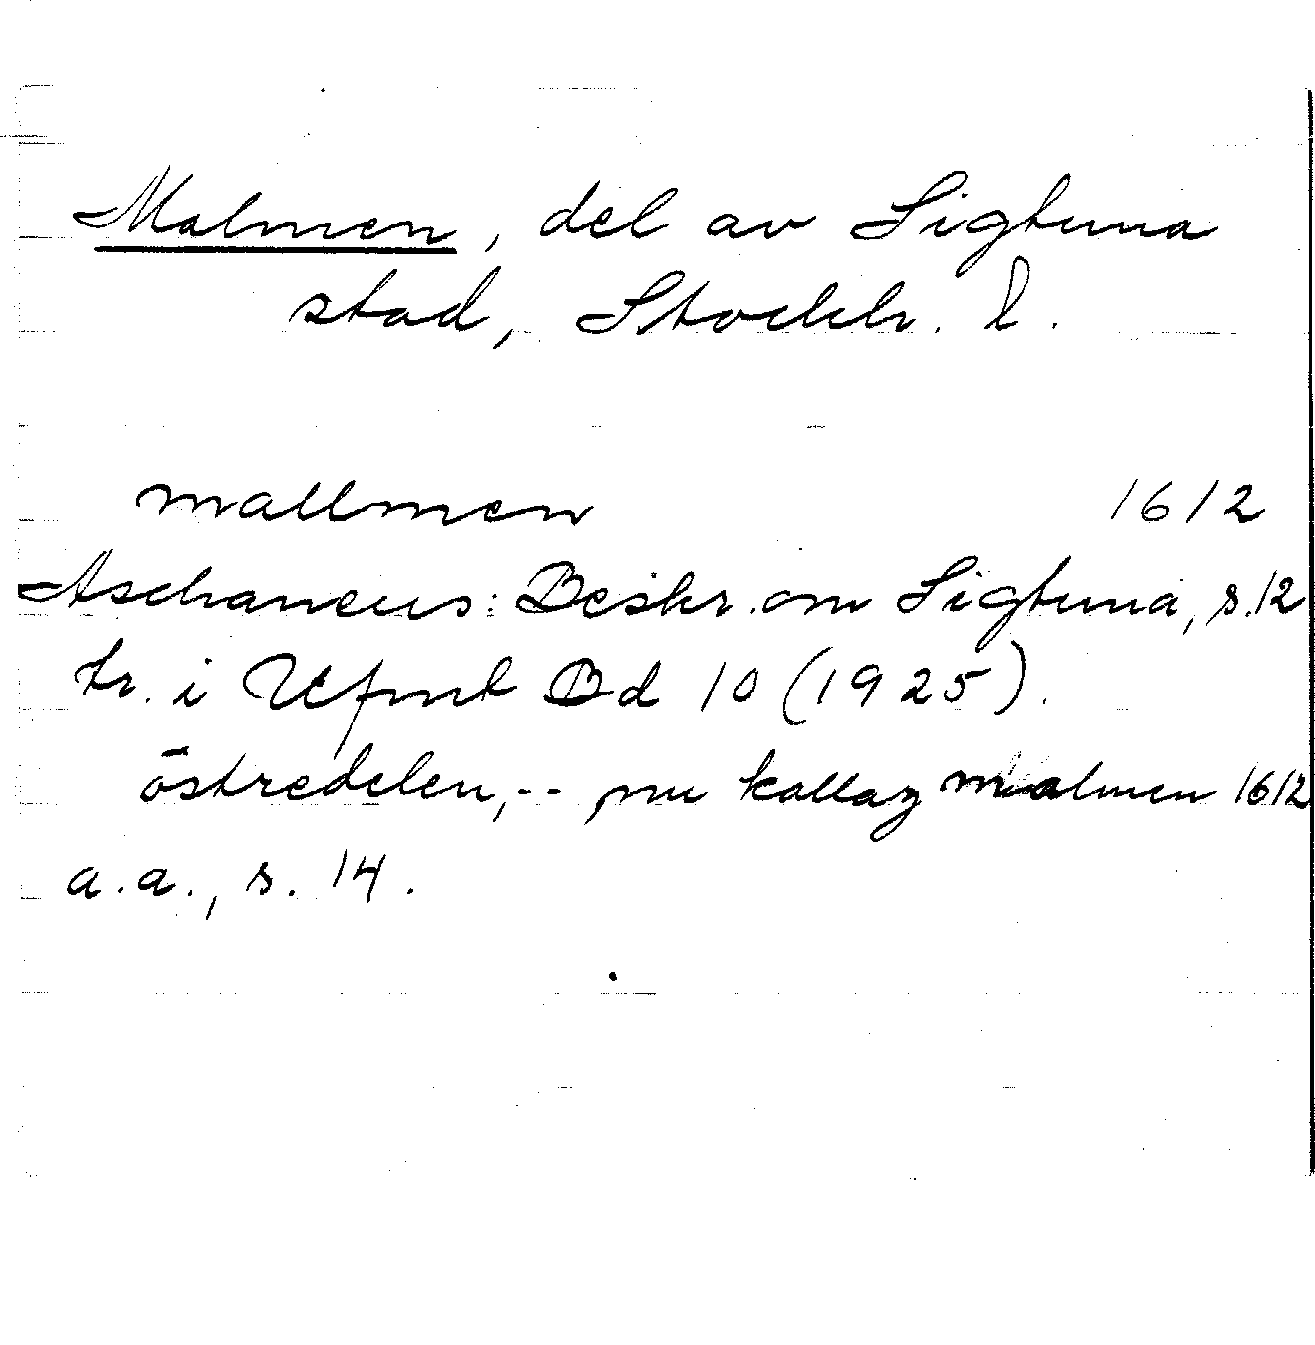 Malmen, del av Sigtuna
stad, Stockh. l.
mallmen 1612
Aschaneus: Beskr. om Sigtuna, s. 12
tr. i Ufmt Bd 10 (1925).
östredelen, -- nu kallaz malmen 1612
a.a., s. 14.